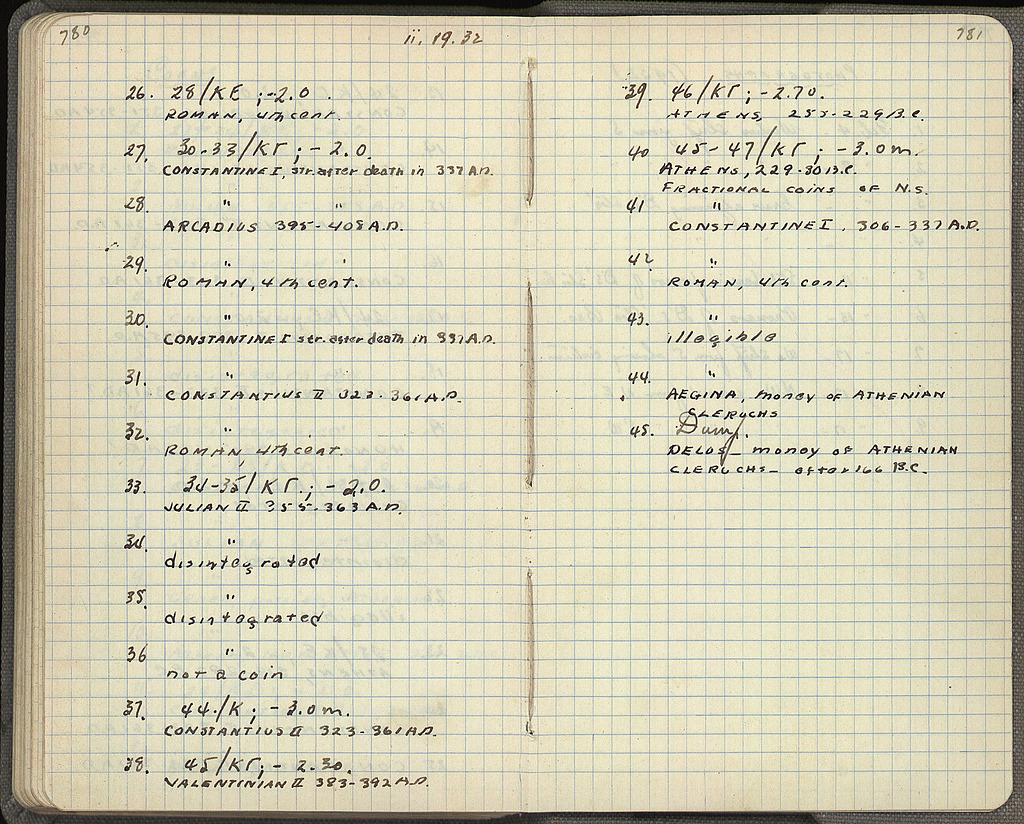 780
ii. 19.32
26. 28/ΚΕ ; -2.0.
ROMAN, 4th cent.
27. 30-33/ΚΓ ; - 2.0.
CONSTANTINE I, str. after death in 337 A.D.
28. " "
ARCADIUS 395-408 A.D.
29. "
ROMAN, 4th cent.
30. "
CONSTANTINE I str. after death in 337 A.D.
31. "
CONSTANTIUS II 323-361 A.D.
32. "
ROMAN, 4th cent.
33. 34-35/ΚΓ. ; - 2.0.
JULIAN II 355-363 A.D.
34. "
disintegrated
35. "
disintegrated
36 "
not a coin
37. 44./Κ ; - 3.0 m.
CONSTANTIUS II 323-361 A.D.
38. 45/ΚΓ; - 2.30.
VALENTINIAN II 383-392 A.D.
781
39. 46/ΚΓ ; - 2.70.
ATHENS, 255-229 B.C.
40 45-47/ΚΓ ; - 3.0 m.
ATHENS, 229-30 B.C.
FRACTIONAL COINS OF N.S.
41 "
CONSTANTINE I, 306-337 A.D.
42 "
ROMAN, 4th cent.
43. "
illegible
44. "
AEGINA, money OF ATHENIAN
CLERUCHS
45. Dump.
DELOS - money of ATHENIAN
CLERUCHS - after 166 B.C.